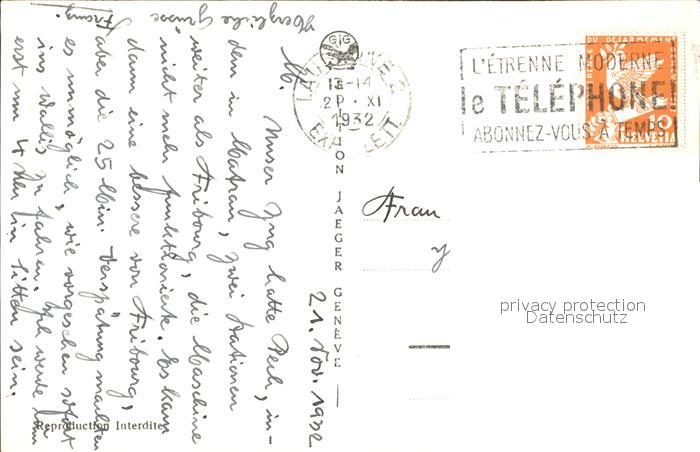 21. Nov. 1932
M. Unser Zug hatte Pech, in-
dem in Matran, zwei Stationen
weiter als Fribourg, die Maschine
nicht mehr funktionierte. Es kam
dann eine bessere von Fribourg,
aber die 25 Min. Verspätung machten
es unmöglich, wie vorgesehen sofort
ins Wallis zu fahren. Ich werde dann
erst um 4 Uhr in Sitten sein.
Herzliche Grüsse
Franz.
Reproduction Interdite
GIG
JAEGER GENÈVE
LAUSANNE 2
13-14
21. XI
1932
EXP. LETT.
L'ÉTRENNE MODERNE
le TÉLÉPHONE!
ABONNEZ-VOUS À TEMPS
DU DESARMEMENT
10
HELVETIA
Frau
privacy protection
Datenschutz